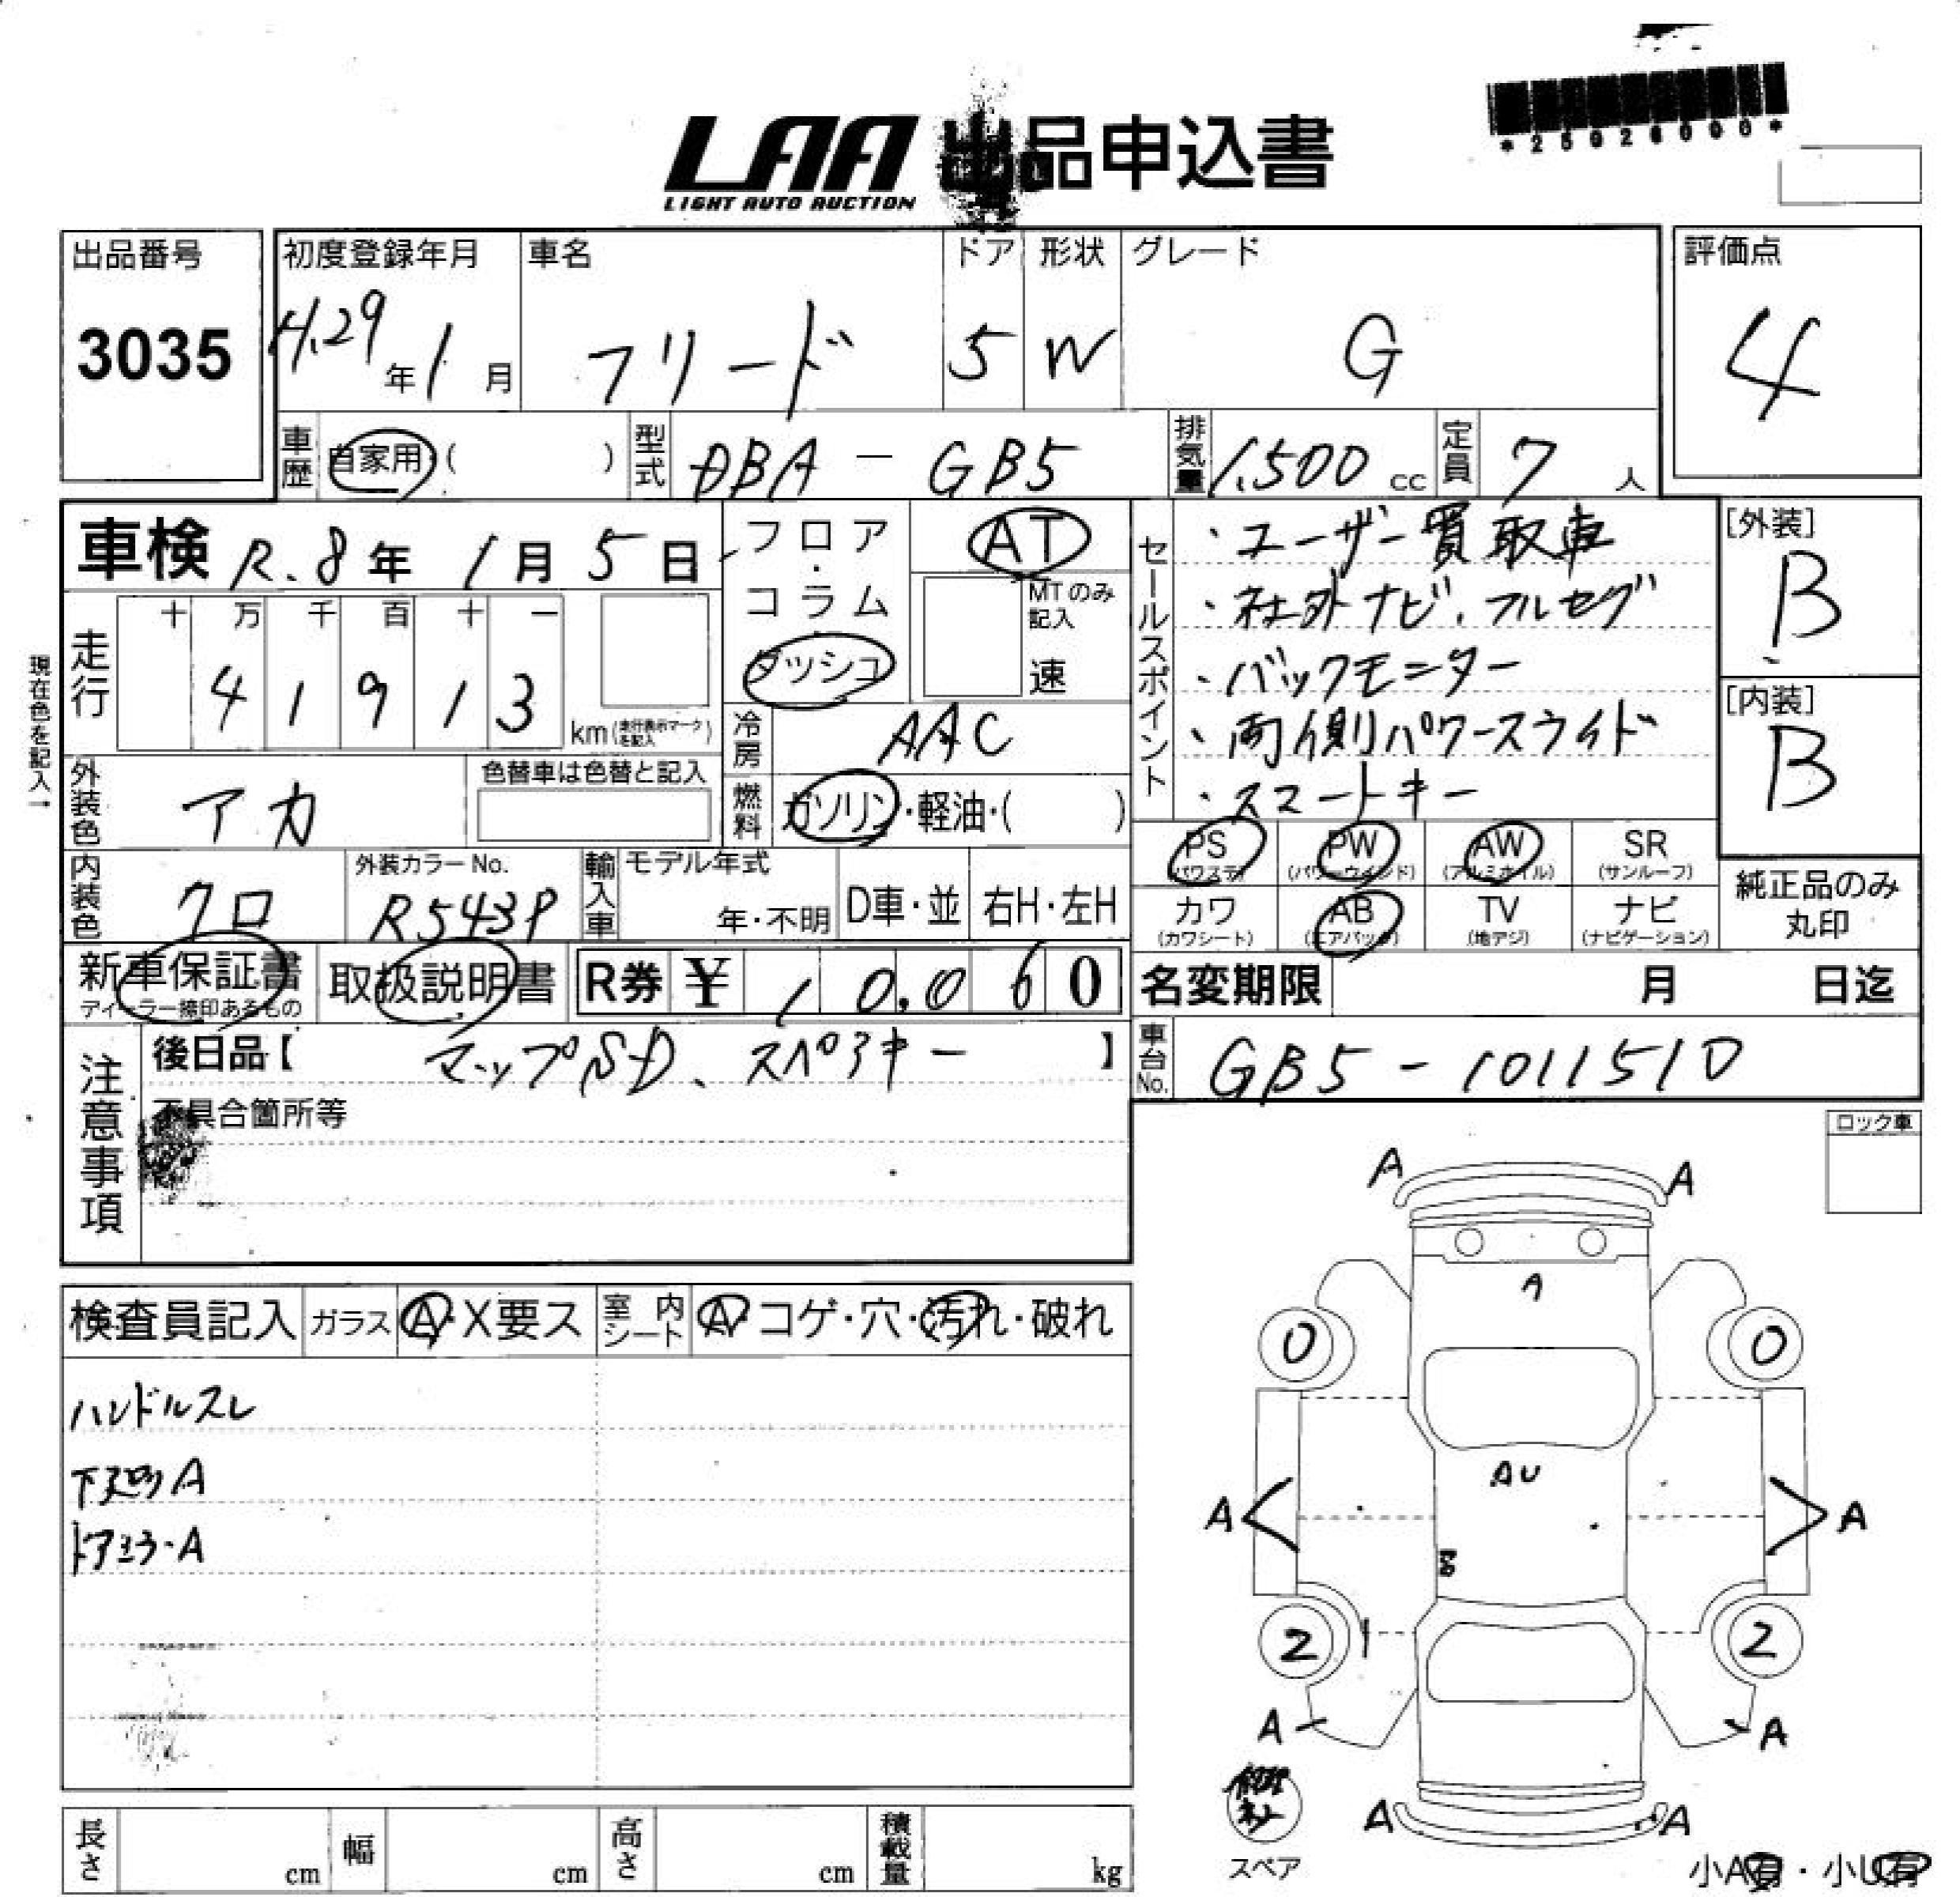 LAA 出品申込書
LIGHT AUTO AUCTION
*25026000*
出品番号 初度登録年月 車名 ドア 形状 グレード 評価点
3035 H.29年1月 フリード 5 W G 4
車歴 自家用・( ) 型式 DBA-GB5 排気量 1,500cc 定員 7人
車検 R.8年1月5日
フロア・コラム・ダッシュ
AT
MTのみ記入
速
セールスポイント
・ユーザー買取車
・社外ナビ、フルセグ
・バックモニター
・両側パワースライド
・スマートキー
[外装]
B
[内装]
B
現在色を記入→
走行 十 万 千 百 十 一
41913 km(走行表示マークを記入)
冷房 AAC
外装色 アカ 色替車は色替と記入
燃料 ガソリン・軽油・( )
内装色 クロ 外装カラーNo. R543P 輸入車 モデル年式 年・不明 D車・並 右H・左H
PS (パワステ) PW (パワーウインド) AW (アルミホイル) SR (サンルーフ)
カワ (カワシート) AB (エアバック) TV (地デジ) ナビ (ナビゲーション)
純正品のみ丸印
新車保証書 ディーラー捺印あるもの 取扱説明書 R券 ¥ 10,060
名変期限 月 日迄
注意事項
後日品【 マップSD、スペアキー 】
車台No. GB5-1011510
不具合箇所等
ロック車
検査員記入 ガラス A・X要ス 室内シート A・コゲ・穴・汚れ・破れ
ハンドルスレ
下廻りA
ドアミラーA
A A
A
0 0
AU
A A
2 2
A A
A A
スペア
小A有・小U有
長さ cm 幅 cm 高さ cm 積載量 kg